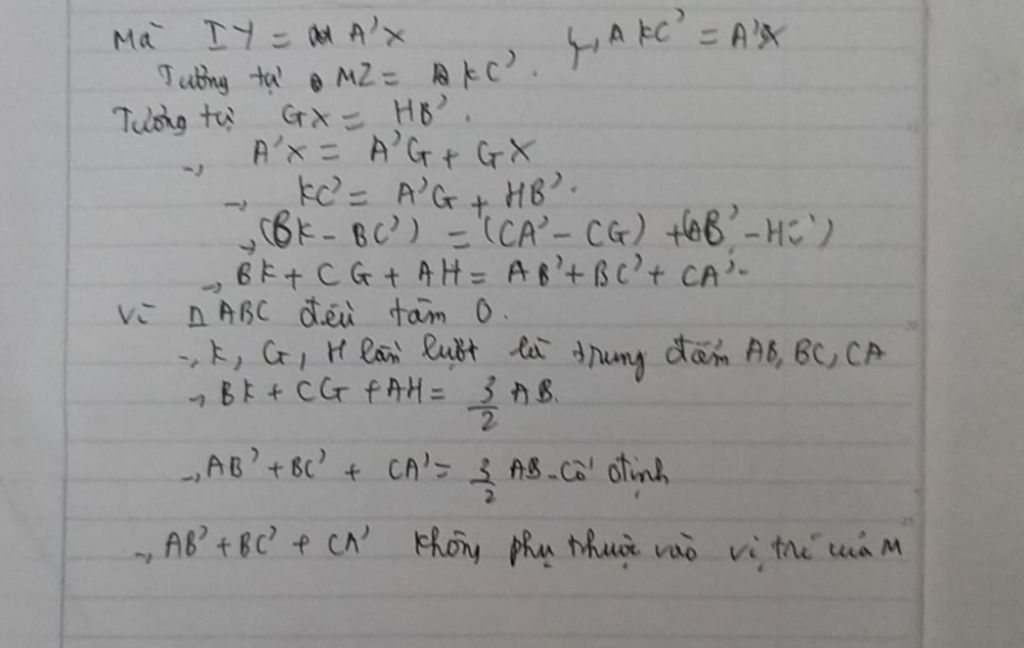 Mà IY = A'X → KC' = A'X
Tương tự MZ = KC'.
Tương tự GX = HB'.
→ A'X = A'G + GX
→ KC' = A'G + HB'.
→ (BK - BC') = (CA' - CG) + (AB' - H')
→ BK + CG + AH = AB' + BC' + CA'.
Vì Δ ABC đều tâm O.
→ K, G, H lần lượt là trung điểm AB, BC, CA
→ BK + CG + AH = 3/2 AB.
→ AB' + BC' + CA' = 3/2 AB - cố định
→ AB' + BC' + CA' không phụ thuộc vào vị trí của M